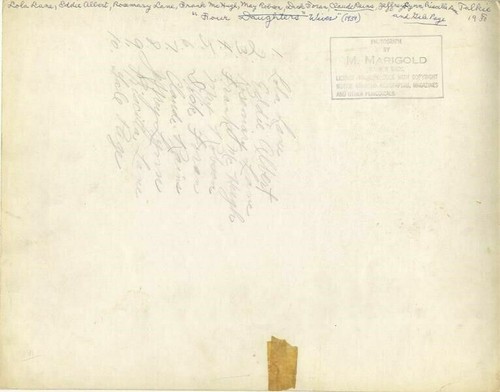 Lola Lane, Eddie Albert, Rosemary Lane, Frank McHugh, May Robson, Dick Foran, Claude Rains, Jeffrey Lynn, Priscilla Lane Talkie
"Four Daughters Wives" (1939) and Gale Page 1939
PHOTOGRAPH
BY
M. MARIGOLD
1 Lola Lane
2 Eddie Albert
3 Rosemary Lane
4 Frank McHugh
5 May Robson
6 Dick Foran
7 Claude Rains
8 Jeffrey Lynn
9 Priscilla Lane
10 Gale Page